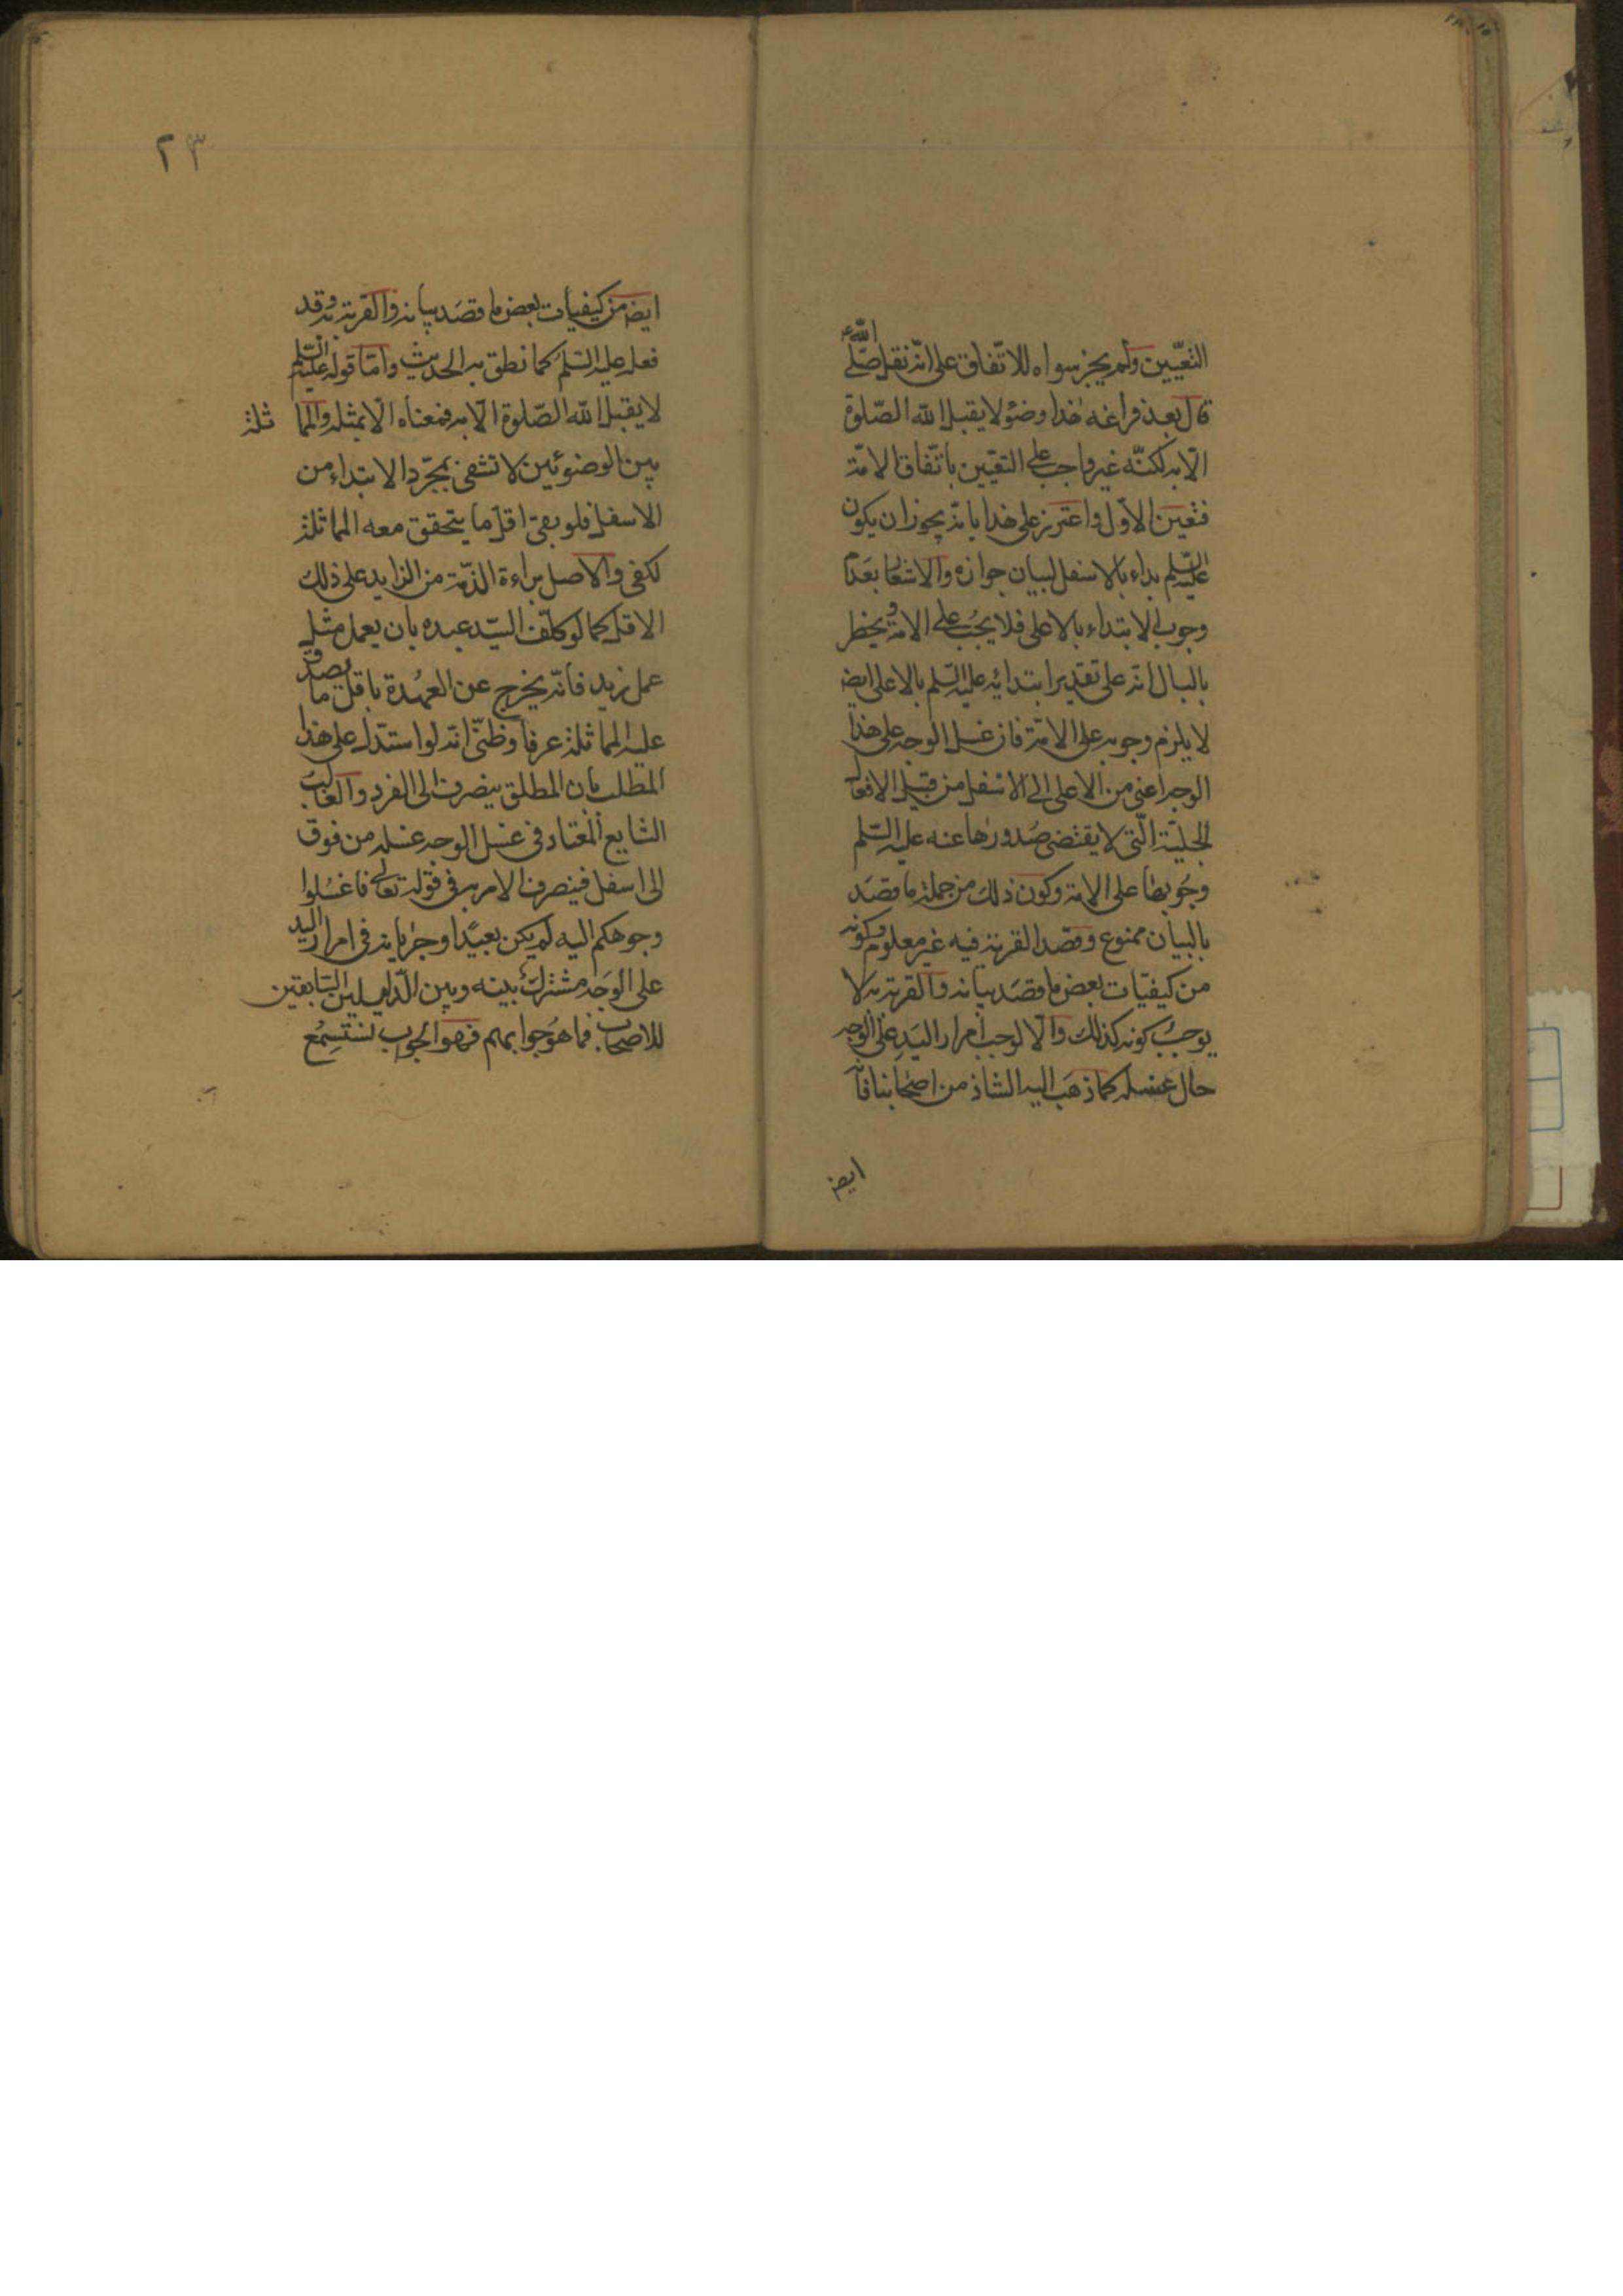 التعيين ولم يجز سواه للاتفاق على انه نقل صلى الله
قال بعد فراغه هذا وضؤ لا يقبل الله الصلوة
الا به لكنه غير واجب على التعيين باتفاق الامة
فتعين الاول واعترض على هذا بانه يجوز ان يكون
عليه السلم بداء بالاسفل لبيان جوازه والاشعار بعدم
وجوب الابتداء بالاعلى فلا يجب على الامة ويخطر
بالبال انه على تقدير ابتدائه عليه السلم بالاعلى ايض
لا يلزم وجوبه على الامة فان غسل الوجه على هذا
الوجه اعنى من الاعلى الى الاسفل من قبيل الافعال
الجبلية التى لا يقتضى صدورها عنه عليه السلم
وجوبها على الامة وكون ذلك من جملة ما قصد
بالبيان ممنوع وقصد القربة فيه غير معلوم وكونه
من كيفيات بعض ما قصد بيانه والقربة به لا
يوجب كونه كذلك والا لوجب امرار اليد على الوجه
حال غسله كما ذهب اليه الشاذ من اصحابنا فانه
ايض
٢٣
ايض من كيفيات بعض ما قصد بيانه والقربة به وقد
فعله عليه السلم كما نطق به الحديث واما قوله عليه السلم
لا يقبل الله الصلوة الا به فمعناه الا بمثله والمما ثلة
بين الوضوئين لا تنتفى بمجرد الابتداء من
الاسفل فلو بقى اقل ما يتحقق معه المماثلة
لكفى والاصل براءة الذمة من الزايد على ذلك
الاقل كما لو كلف السيد عبده بان يعمل مثل
عمل زيد فانه يخرج عن العهدة باقل ما يصدق
عليه المماثلة عرفا وظنى انه لو استدل على هذا
المطلب بان المطلق ينصرف الى الفرد والغالب
الشايع المعتاد فى غسل الوجه غسله من فوق
الى اسفل فينصرف الامر به فى قوله تعالى فاغسلوا
وجوهكم اليه لم يكن بعيدا وجريانه فى امرار اليد
على الوجه مشترك بينه وبين الدليلين السابقين
للاصحاب فما هو جوابهم فهو الجواب لنستمع